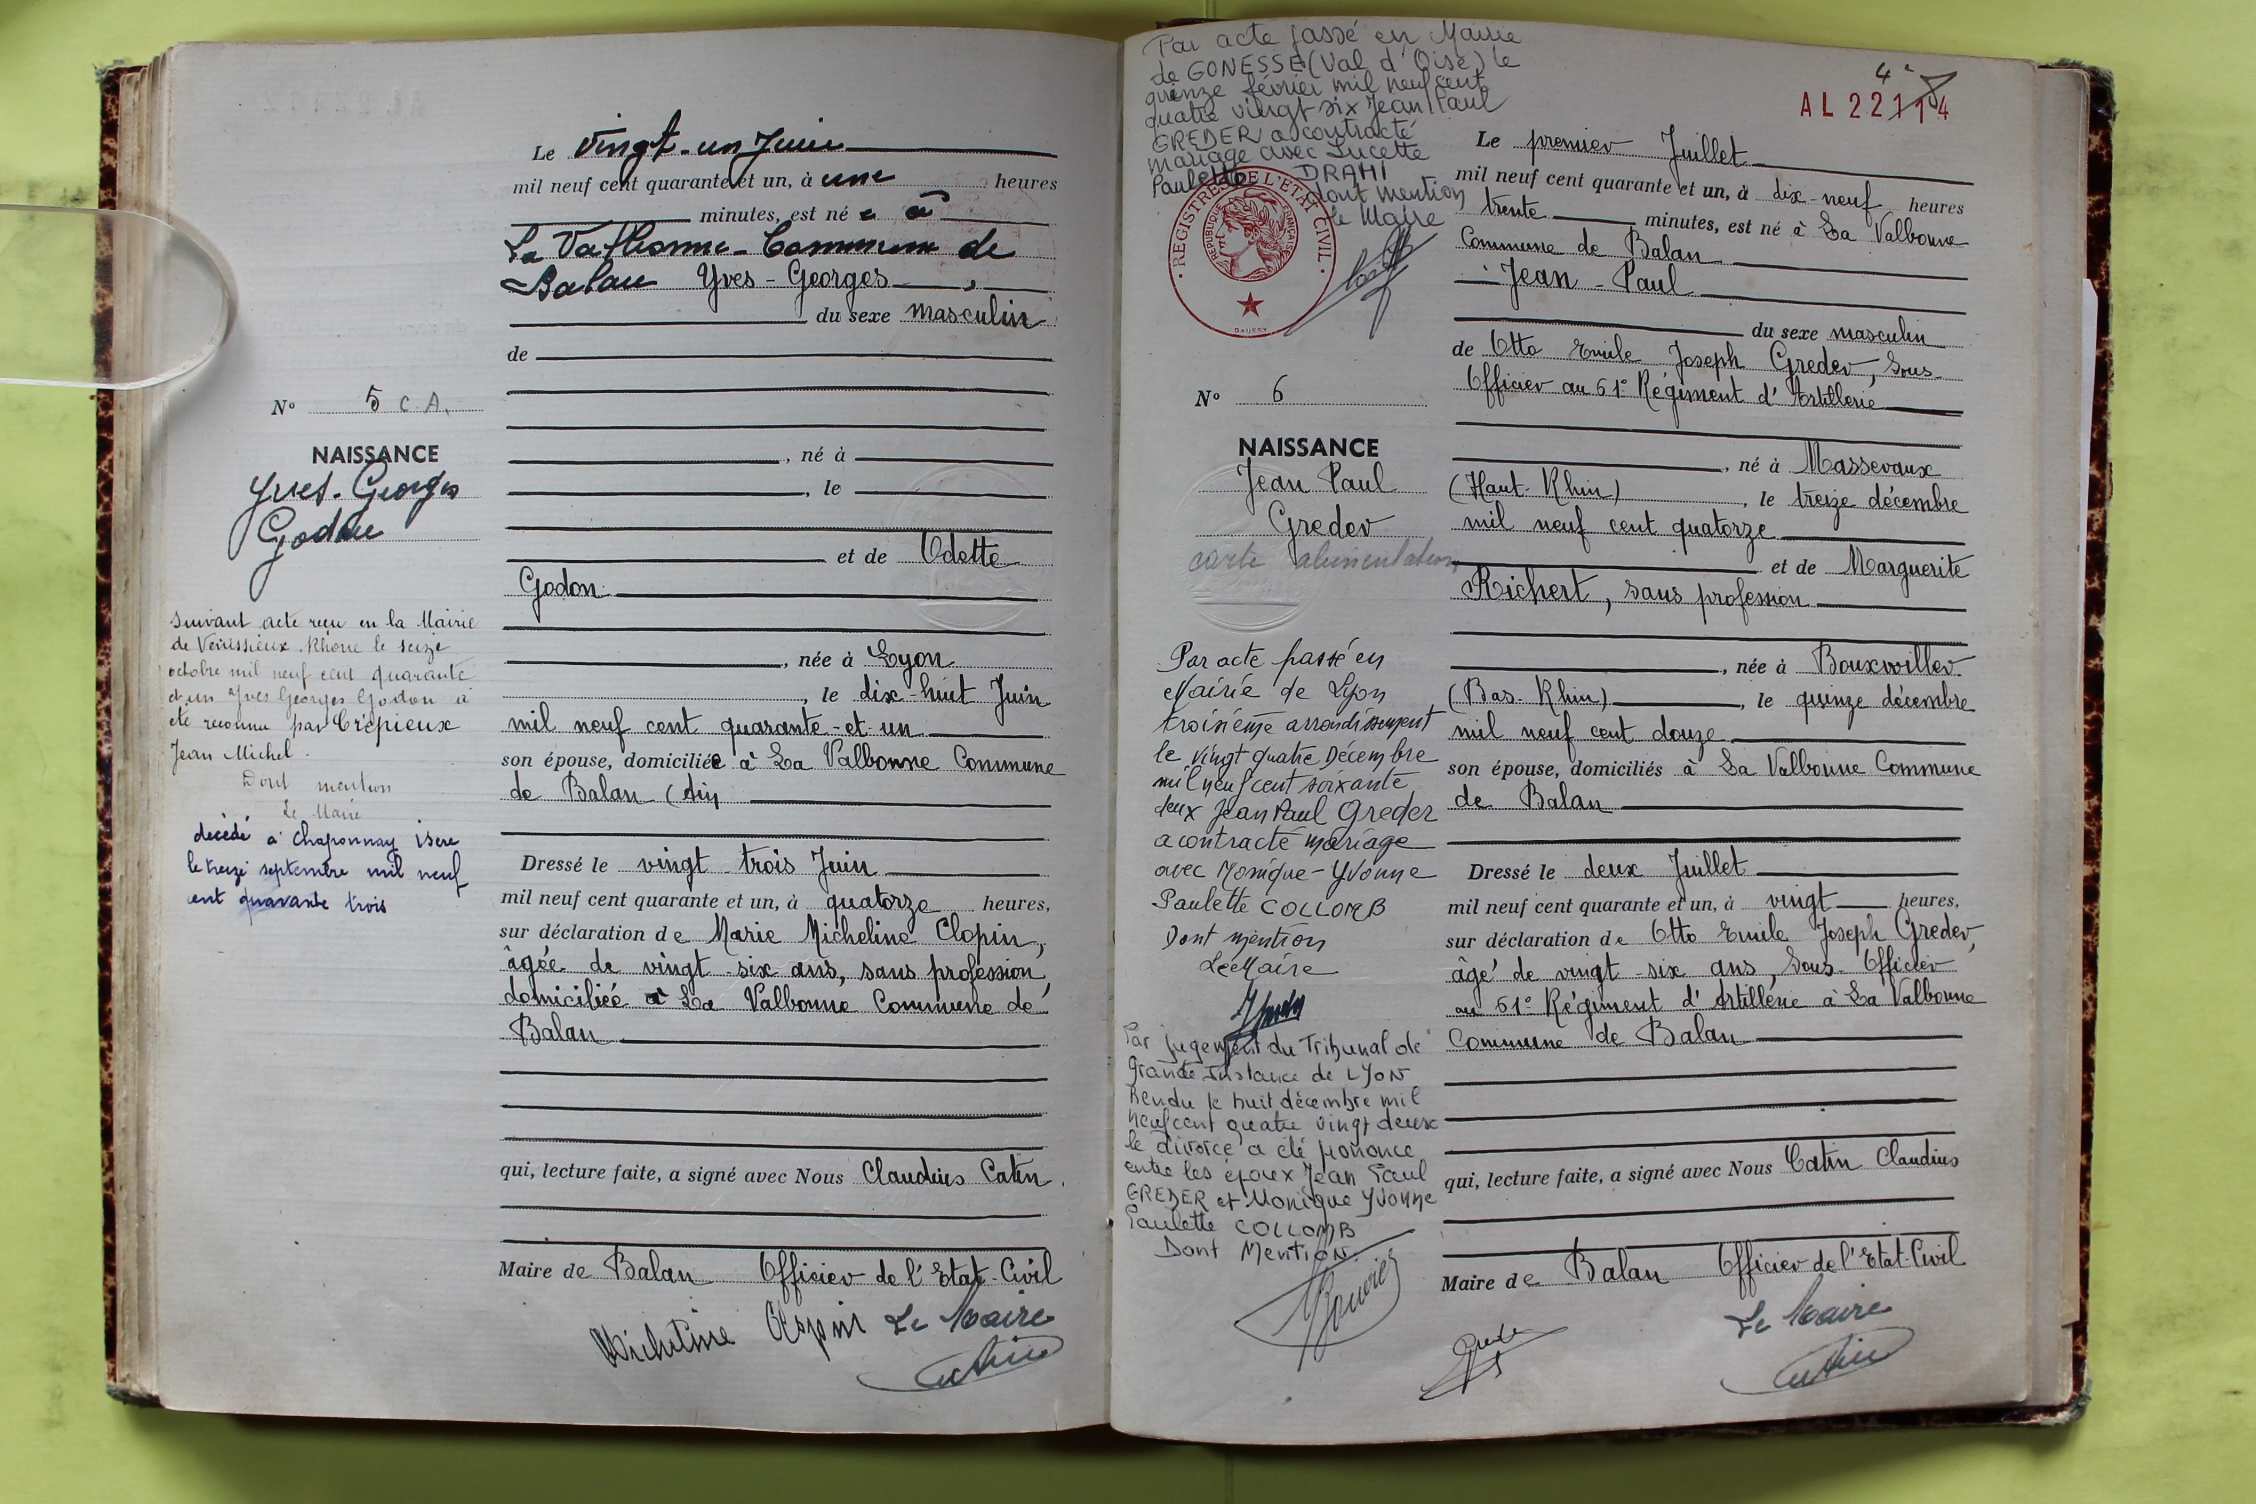 Le vingt-un Juin
mil neuf cent quarante et un, à une heures
minutes, est né e à
La Valbonne - Commune de
Balan Yves - Georges
du sexe masculin
de
N° 5 C.A.
, né à
NAISSANCE
, le
Yves-Georges
Godon
et de Odette
Godon
, née à Lyon
, le dix-huit Juin
mil neuf cent quarante-et-un
son épouse, domiciliée à La Valbonne Commune
de Balan (Ain
Suivant acte reçu en la Mairie
de Vénissieux Rhône le seize
octobre mil neuf cent quarante
et un Yves Georges Godon a
été reconnu par Crépieux
Jean Michel.
Dont mention
Le Maire
décédé à Chaponnay Isère
le treize septembre mil neuf
cent quarante trois
Dressé le vingt-trois Juin
mil neuf cent quarante et un, à quatorze heures,
sur déclaration de Marie Micheline Clopin,
âgée de vingt-six ans, sans profession,
domiciliée à La Valbonne Commune de
Balan
qui, lecture faite, a signé avec Nous Claudius Catin.
Maire de Balan Officier de l'Etat-Civil
Micheline Clopin Le Maire
Catin
Par acte passé en Mairie
de GONESSE (Val d'Oise) le
quinze février mil neuf cent
quatre vingt six Jean Paul
GREDER a contracté
mariage avec Lucette
Paulette DRAHI
dont mention
Le Maire
REGISTRES DE L'ETAT CIVIL
REPUBLIQUE FRANÇAISE
DAUSSY
4e
AL 22114
Le premier Juillet
mil neuf cent quarante et un, à dix-neuf heures
trente minutes, est né à La Valbonne
Commune de Balan
Jean - Paul
du sexe masculin
de Otto Emile Joseph Greder, Sous-
Officier au 61e Régiment d'Artillerie
N° 6
, né à Massevaux
NAISSANCE
(Haut-Rhin) , le treize décembre
Jean Paul
mil neuf cent quatorze
Greder
carte alimentation
et de Marguerite
Richert, sans profession
, née à Bouxwiller
(Bas-Rhin) , le quinze décembre
mil neuf cent douze
son épouse, domiciliés à La Valbonne Commune
de Balan
Par acte passé en
Mairie de Lyon
troisième arrondissement
le vingt quatre Décembre
mil neuf cent soixante
deux Jean Paul Greder
a contracté mariage
avec Monique-Yvonne
Paulette COLLOMB
Dont mention
Le Maire
Dressé le deux Juillet
mil neuf cent quarante et un, à vingt heures,
sur déclaration de Otto Emile Joseph Greder,
âgé de vingt-six ans, Sous-Officier
au 61e Régiment d'Artillerie à La Valbonne
Commune de Balan
Par jugement du Tribunal de
Grande Instance de LYON
Rendu le huit décembre mil
neuf cent quatre vingt deux
le divorce a été prononcé
entre les époux Jean Paul
GREDER et Monique Yvonne
Paulette COLLOMB
Dont Mention.
qui, lecture faite, a signé avec Nous Catin Claudius
Maire de Balan Officier de l'Etat-Civil
Le Maire
Greder
Catin